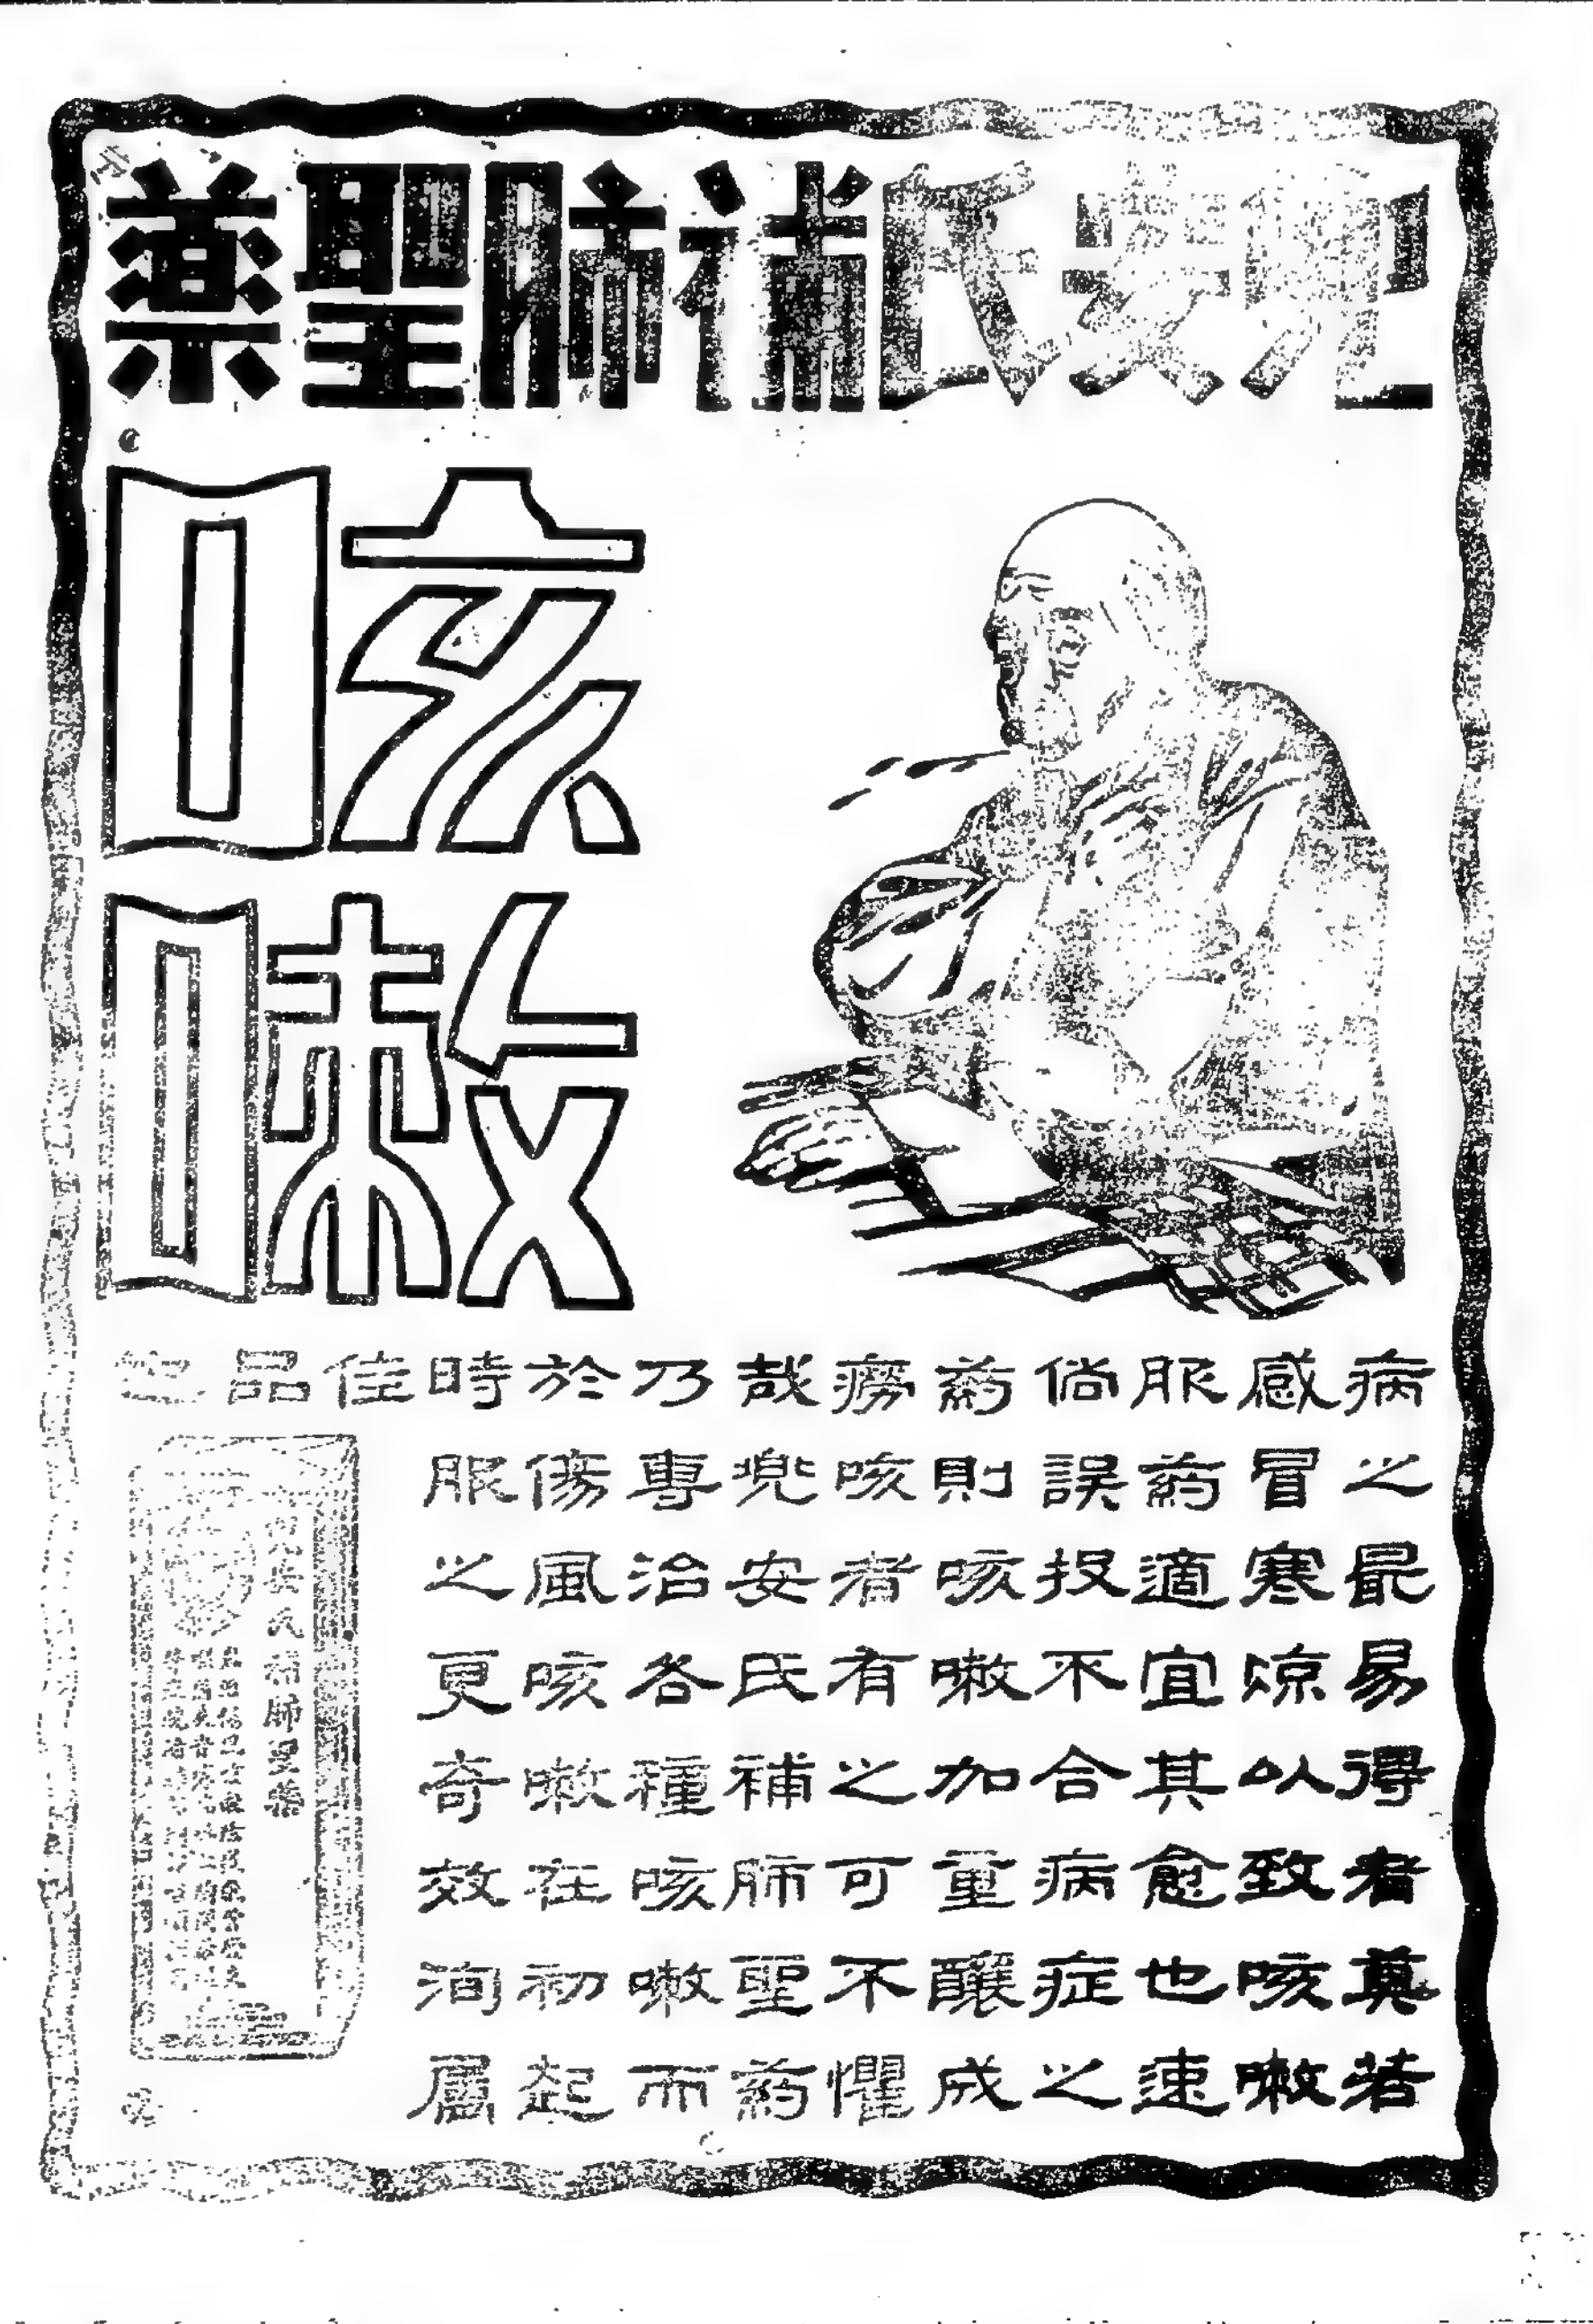 兜安氏補肺聖藥
咳
嗽
病之最易得者莫若
感冒寒凉以致咳嗽
服药適宜其愈也速
倘誤投不合病症之
药則咳嗽加重釀成
癆咳者有之可不懼
哉兜安氏補肺聖药
乃專治各種咳嗽而
於傷風咳嗽在初起
時服之更奇效洵屬
佳
品
兜安氏補肺聖藥